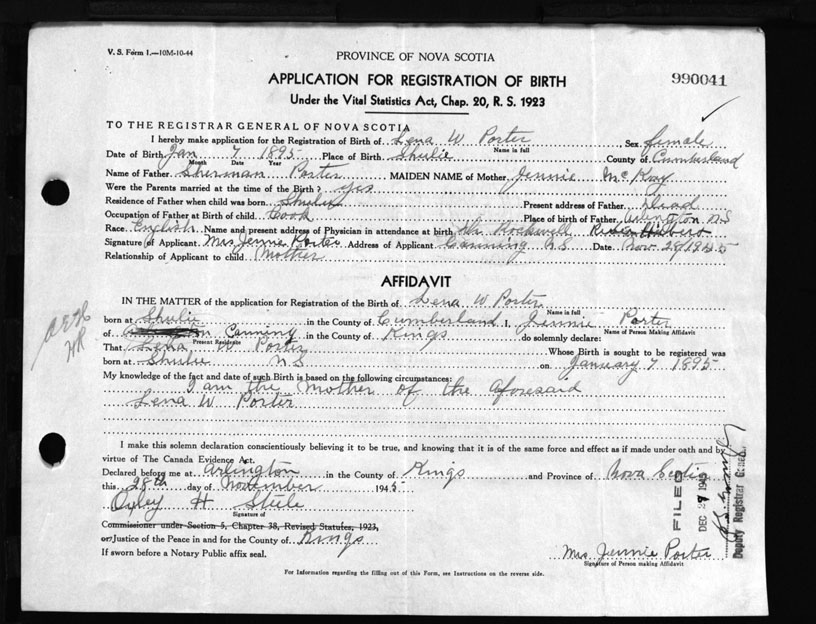 V. S. Form 1.—10M-10-44
PROVINCE OF NOVA SCOTIA
APPLICATION FOR REGISTRATION OF BIRTH
990041
Under the Vital Statistics Act, Chap. 20, R. S. 1923
TO THE REGISTRAR GENERAL OF NOVA SCOTIA
I hereby make application for the Registration of Birth of Lena W Porter Sex female
Name in full
Date of Birth Jan 7 1895 Place of Birth Shulie County of Cumberland
Month Date Year
Name of Father Sherman Porter MAIDEN NAME of Mother Jennie McKoy
Were the Parents married at the time of the Birth? yes
Residence of Father when child was born Shulie Present address of Father Dead
Occupation of Father at Birth of child Cook Place of birth of Father Arlington N S
Race English Name and present address of Physician in attendance at birth Dr Rockwell River Hebert
Signature of Applicant Mrs Jennie Porter Address of Applicant Canning N S Date Nov 28 1945
Relationship of Applicant to child Mother
AFFIDAVIT
IN THE MATTER of the application for Registration of the Birth of Lena W Porter
Name in full
born at Shulie in the County of Cumberland I, Jennie Porter
Name of Person Making Affidavit
of Canning in the County of Kings do solemnly declare:
Present Residence
That Lena W Porter Whose Birth is sought to be registered was
born at Shulie N S on January 7 1895
My knowledge of the fact and date of such Birth is based on the following circumstances:
I am the Mother of the aforesaid
Lena W Porter
I make this solemn declaration conscientiously believing it to be true, and knowing that it is of the same force and effect as if made under oath and by
virtue of The Canada Evidence Act.
Declared before me at Arlington in the County of Kings and Province of Nova Scotia
this 28th day of November 1945
Oxley H Steele
Signature of
Commissioner under Section 5, Chapter 38, Revised Statutes, 1923,
or Justice of the Peace in and for the County of Kings
If sworn before a Notary Public affix seal.
Mrs Jennie Porter
Signature of Person making Affidavit
For Information regarding the filling out of this Form, see Instructions on the reverse side.
FILED
DEC 27 1945
Deputy Registrar General